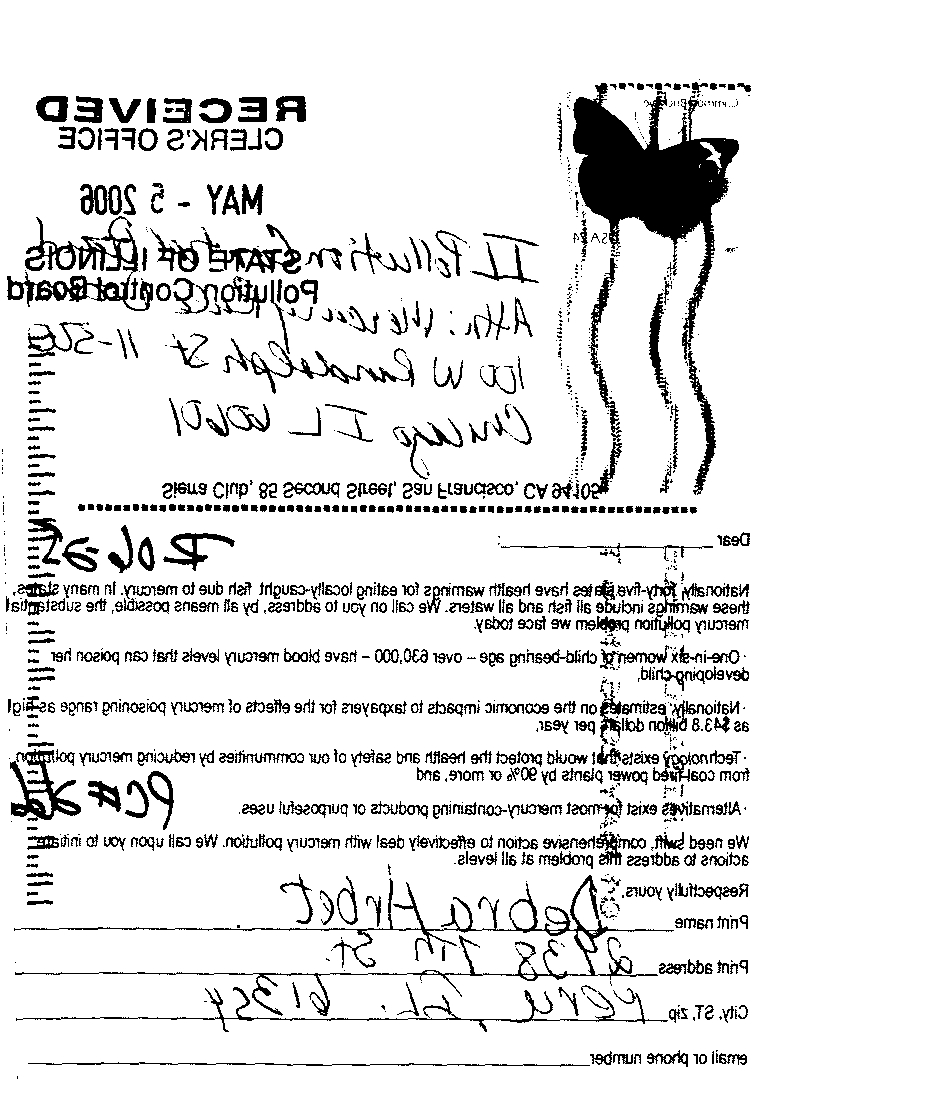 RECEIVED
CLERK'S OFFICE
MAY - 5 2006
STATE OF ILLINOIS
Pollution Control Board
USA 24
IL Pollution Control Board
Attn: Mercury
100 W Randolph St 11-500
Chicago IL 60601
Sierra Club, 85 Second Street, San Francisco, CA 94105
R06-25
Dear :
Nationally, forty-five states have health warnings for eating locally-caught fish due to mercury. In many states,
these warnings include all fish and all waters. We call on you to address, by all means possible, the substantial
mercury pollution problem we face today.
· One-in-six women of child-bearing age – over 630,000 – have blood mercury levels that can poison her
developing child,
· Nationally, estimates on the economic impacts to taxpayers for the effects of mercury poisoning range as high
as $43.8 billion dollars per year,
· Technology exists that would protect the health and safety of our communities by reducing mercury pollution
from coal-fired power plants by 90% or more, and
PC#
· Alternatives exist for most mercury-containing products or purposeful uses.
We need swift, comprehensive action to effectively deal with mercury pollution. We call upon you to initiate
actions to address this problem at all levels.
Respectfully yours,
Print name Debra Arbet
Print address 2938 7th St.
City, ST, zip Peru, IL. 61354
email or phone number